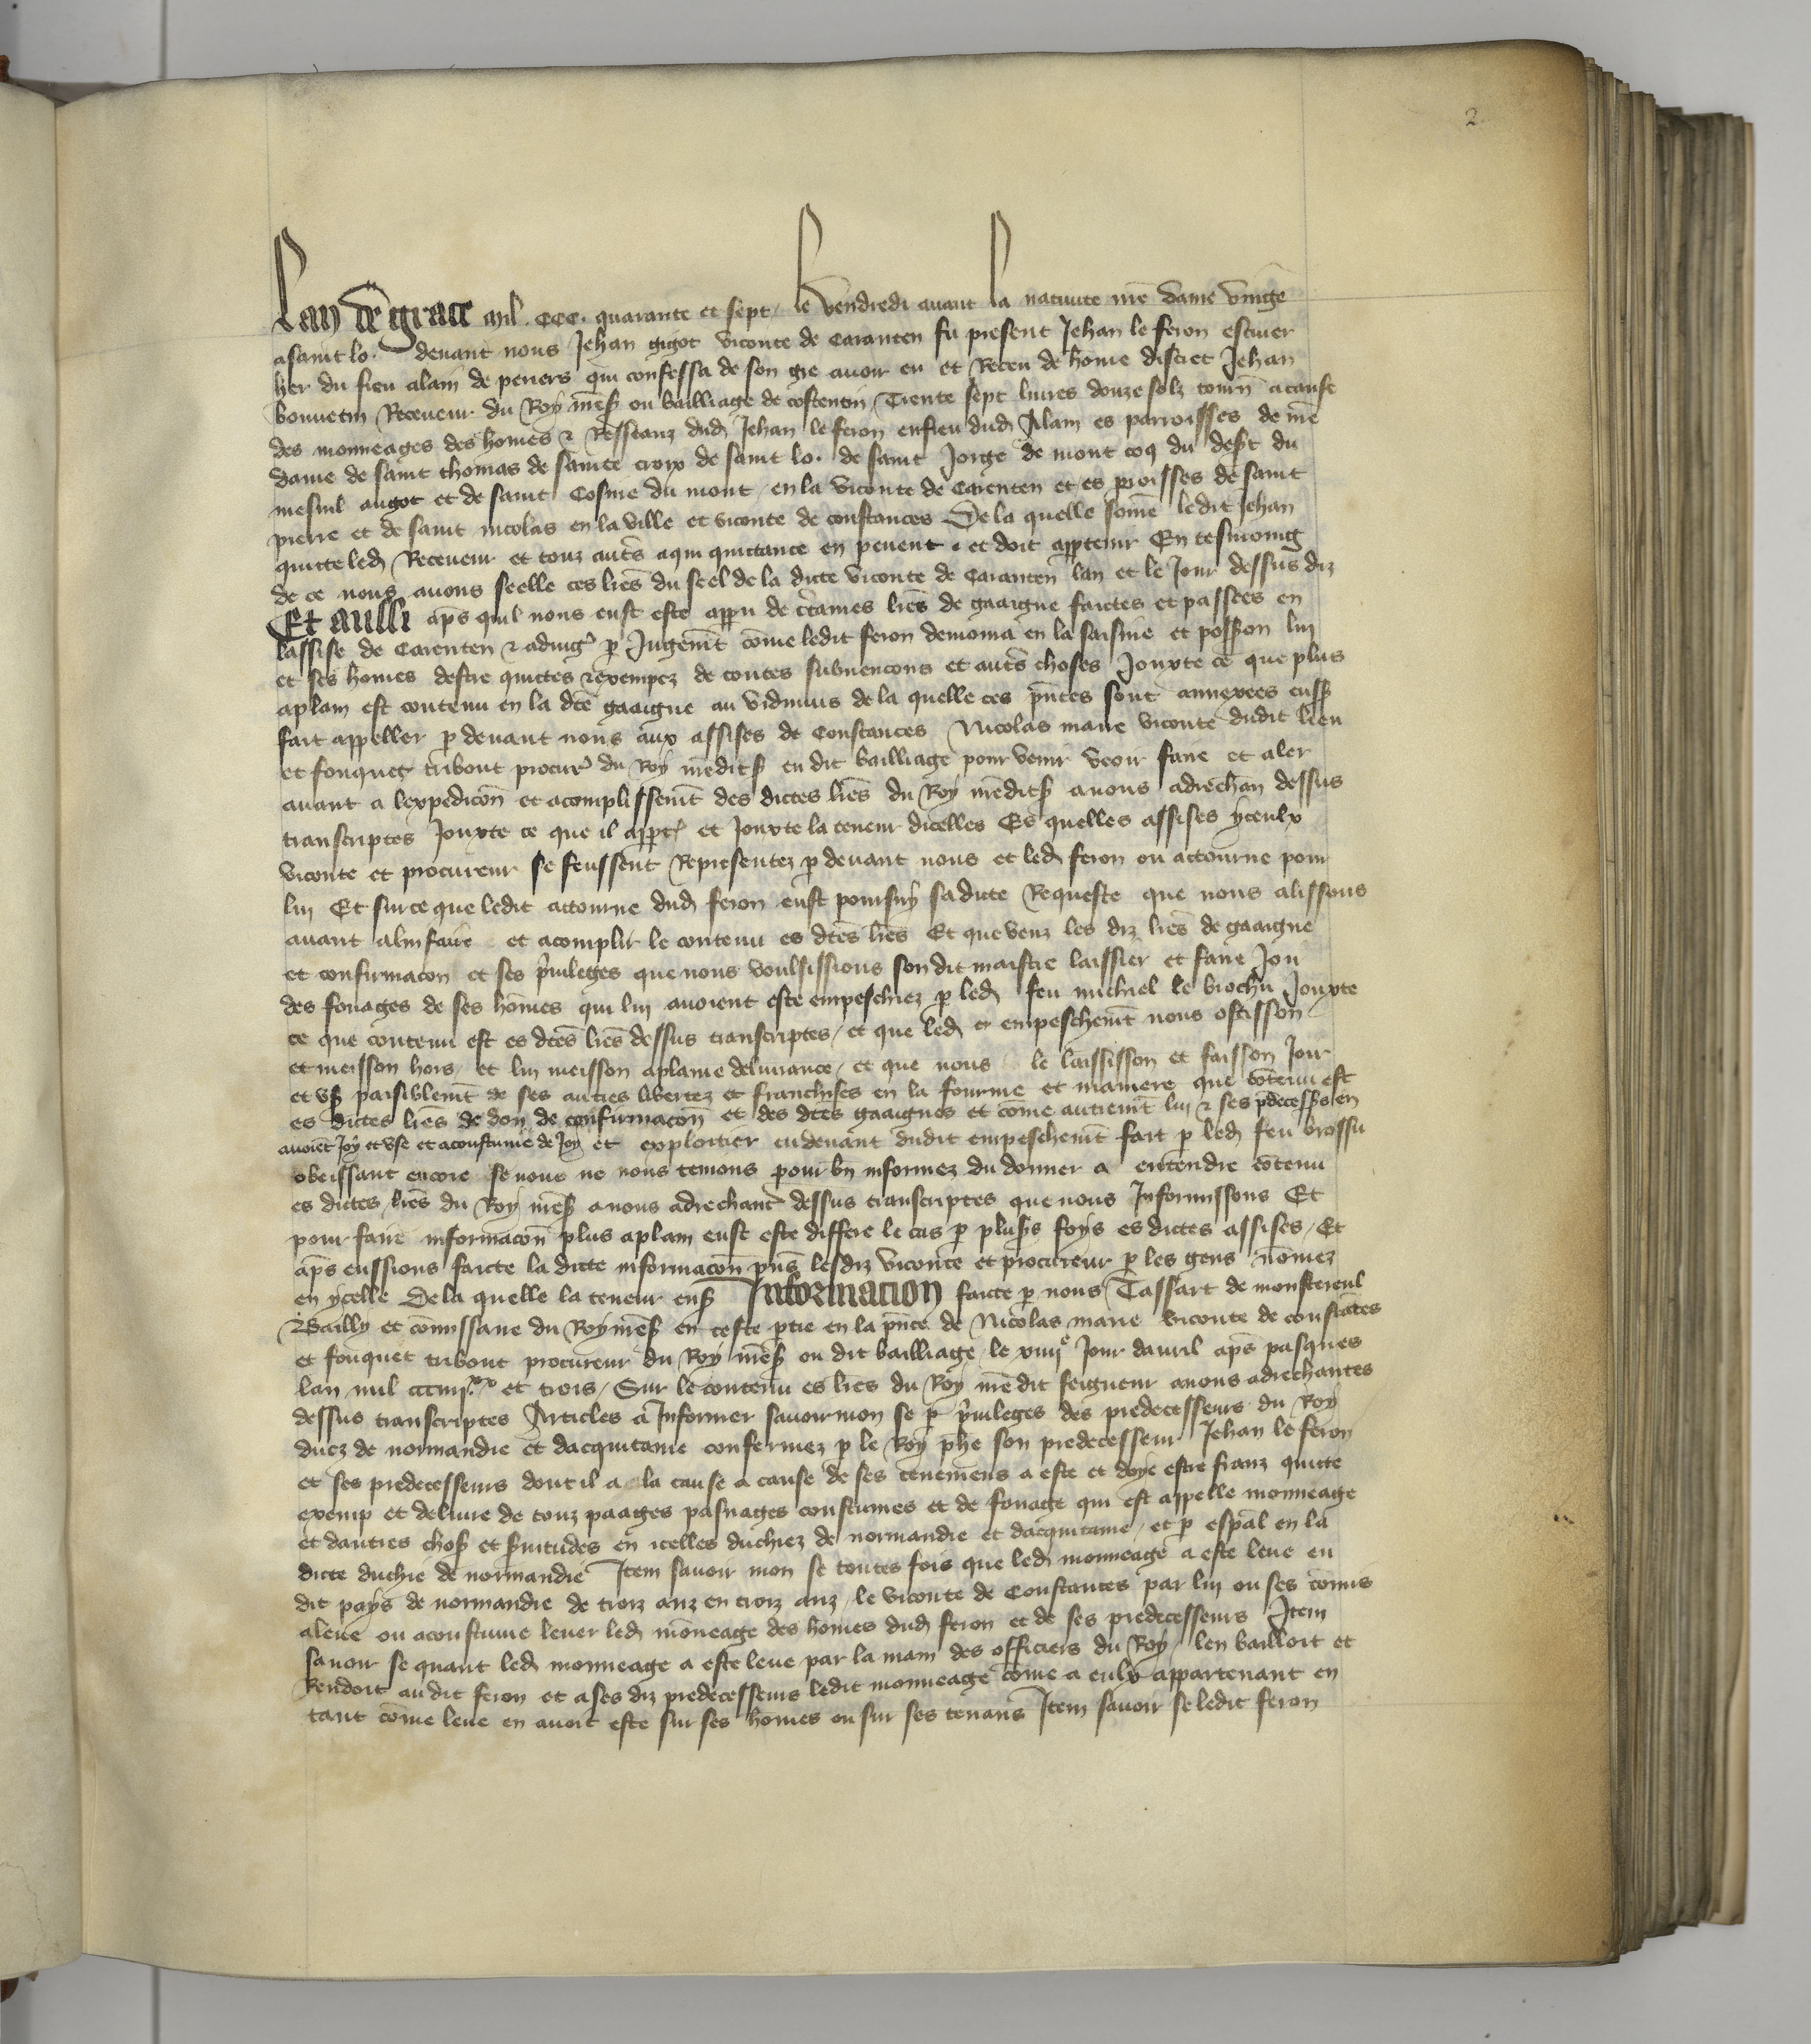 2
Lan de grace mil . CCC . quarante et sept / le vendredi avant la nativite nre dame vierge
a saint lo . devant nous Jehan gigot viconte de Caranten fu present Jehan le feron escuier
her du fieu alain de periers qui confessa de son gre avoir eu et Receu de home discret Jehan
bonnetin Receveur du Roy nres ou bailliage de costentin / Trente sept livres douze solz tourn a cause
des monneages des homes & Resseanz dud Jehan le feron en fieu dud Alain es parroisses de nre
dame de saint thomas de saincte croix de saint lo . de saint Jorge de mont coq du desert du
mesnil angot et de saint Cosme du mont / en la viconte de Carenten et es proisses de saint
pierre et de saint nicolas en la ville et viconte de constances De la quelle some ledit Jehan
quitte led Receveur et touz autrs a qui quittance en peuent et doit apptenir En tesmoing
de ce nous avons seelle ces lres du seel de la dicte viconte de Caranten lan et le Jour dessus diz
Et aussi aps quil nous eust este apparu de ctaines lres de gaaigne faictes et passees en
lassise de Carenten & adiug p Jugemt come ledit feron demorra en la saisine et possion lui
et ses homes destre quittes & exempez de toutes subvencons et autrs choses Jouxte ce que plus
a plain est contenu en la dcte gaaigne au vidimus de la quelle ces pntes sont annexees euss
fait appeller p devant nous aux assises de Constances Nicolas marie viconte dudit lieu
et fouquet tribout procur du Roy nredits eu dit bailliage pour venir veoir faire et aler
avant a lexpedicon et acomplissemt des dictes lres du Roy nredits a nous adrechan dessus
transcriptes Jouxte ce que il appt et Jouxte la teneur dicelles Es quelles assises yceulx
viconte et procureur se feussent Representez p devant nous et led feron ou attourne pour
lui Et sur ce que ledit attourne dud feron eust poursuy sa dicte Requeste que nous alissons
avant a lui faire et acomplir le contenu es dctes lres Et que veuz les diz lres de gaaigne
et confirmacon et ses privileges que nous voulsissions son dit maistre laissier et faire Joir
des fouages de ses homes qui lui avoient este empeschiez p led feu michiel le brochu Jouxte
ce que contenu est es dctes lres dessus transcriptes / et que led empeschemt nous ostisson
et meisson hors / et lui meisson a plaine delivrance / et que nous le laississon et faisson Joir
et us paisiblemt de ses autres libertez et franchises en la fourme et maniere que contenu est
es dictes lres de don de confirmacon et des dctes gaaignes et come autremt lui & ses pdecesss en
avoiet Joy et use et acoustume de Joy et exploitier eu devant dudit empeschemt fait p led feu brossu
obeissant encore se nous ne nous tenions pour bn informez du donner a entendre contenu
es dictes lres du Roy nres a nous adrechant dessus transcriptes que nous Informissons Et
pour faire informacon plus a plain eust este differe le cas p plusrs foys es dictes assises / Et
aps eussions faicte la dicte informacon pns lesdiz viconte et procureur p les gens nomez
en ycelle De la quelle la teneur ens Information faicte p nous Tassart de monstereul
Bailly et comissaire du Roy nres en ceste ptie en la pnce de Nicolas marie viconte de constances
et fouquet tribout procureur du Roy nres ou dit bailliage / le xiiiie Jour davril aps pasques
lan mil ccciiiixx et trois / Sur le contenu es lres du Roy nre dit seigneur a nous adrechantes
dessus transcriptes Articles a Informer savoir mon se p privileges des predecesseurs du Roy
ducz de normandie et dacquitaine confermez p le Roy phe son predecesseur Jehan le feron
et ses predecesseurs dont il a la cause a cause de ses tenemens a este et doye estre franz quitte
exemp et delivre de touz paages pasnages coustumes et de fouage qui est appelle monneage
et dautres chos et svitudes en icelles duchiez de normandie et dacquitaine / et p espal en la
dicte duchie de normandie Item savoir mon se toutes fois que led monneage a este leve eu
dit pays de normandie de troiz anz en troiz anz / le viconte de Constances par lui ou ses comis
a leve ou acoustume lever led monneage des homes dud feron et de ses predecesseurs Item
savoir se quant led monneage a este leve par la main des officiers du Roy / len bailloit et
Rendoit au dit feron et a ses diz predecesseurs ledit monneage come a eulx appartenant en
tant come leve en avoit este sur ses homes ou sur ses tenans Item savoir se ledit feron